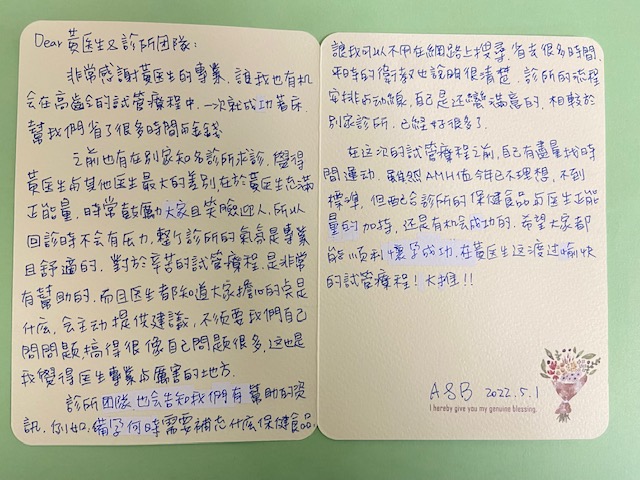 Dear 黃医生&診所团隊:
非常感謝黃医生的專業, 讓我也有机
会在高齡的試管療程中, 一次就成功著床
幫我們省了很多時間与金錢
之前也有在別家知名診所求診, 覺得
黃医生与其他医生最大的差別在於黃医生充滿
正能量, 時常鼓厲大家且笑臉迎人, 所以
回診時不会有压力, 整个診所的氣氛是專業
且舒適的, 對於辛苦的試管療程, 是非常
有幫助的, 而且医生都知道大家擔心的点是
什庅, 会主动提供建議, 不須要我們自己
問問題搞得很像自己問題很多, 这也是
我覺得医生專業与厲害的地方.
診所团隊也会告知我們有幫助的資
訊, 例如, 備孕何時需要補充什庅保健食品
讓我可以不用在網路上搜尋, 省去很多時間,
平時的衛教也說明很清楚, 診所的流程
安排与动線, 自己是还蠻滿意的, 相較於
別家診所, 已經好很多了.
在这次的試管療程之前, 自己有盡量找時
間運动, 雖然AMH值今年已不理想, 不到
標準, 但配合診所的保健食品与医生正能
量的加持, 还是有机会成功的, 希望大家都
能順利懷孕成功, 在黃医生这渡过愉快
的試管療程! 大推!!
A&B 2022.5.1
I hereby give you my genuine blessing.